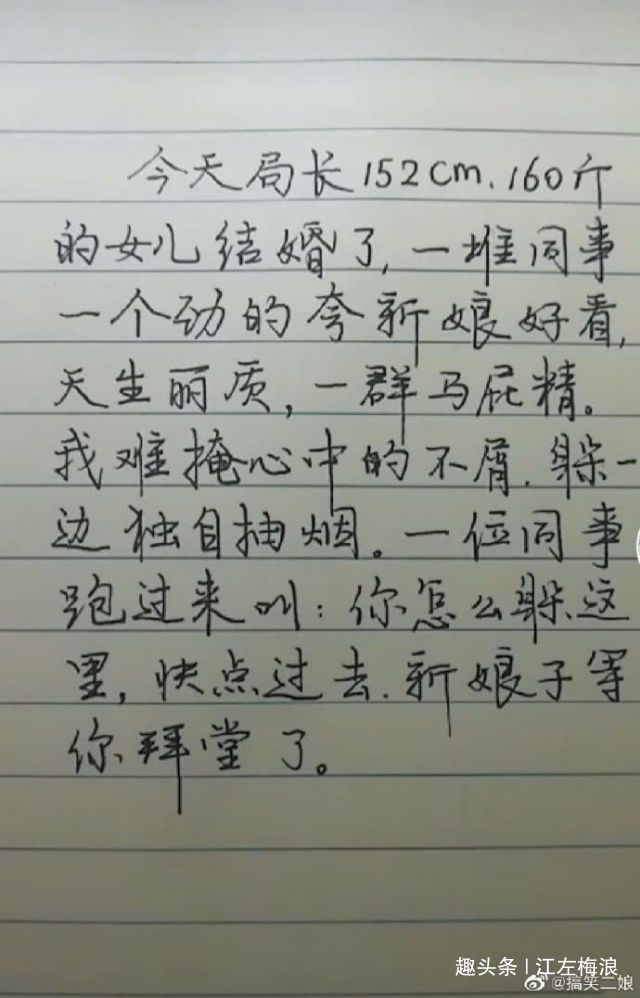 今天局长152cm.160斤
的女儿结婚了,一堆同事
一个劲的夸新娘好看,
天生丽质,一群马屁精。
我难掩心中的不屑.躲一
边独自抽烟。一位同事
跑过来叫:你怎么躲这
里,快点过去.新娘子等
你拜堂了。
趣头条 | 江左梅浪
@搞笑二娘